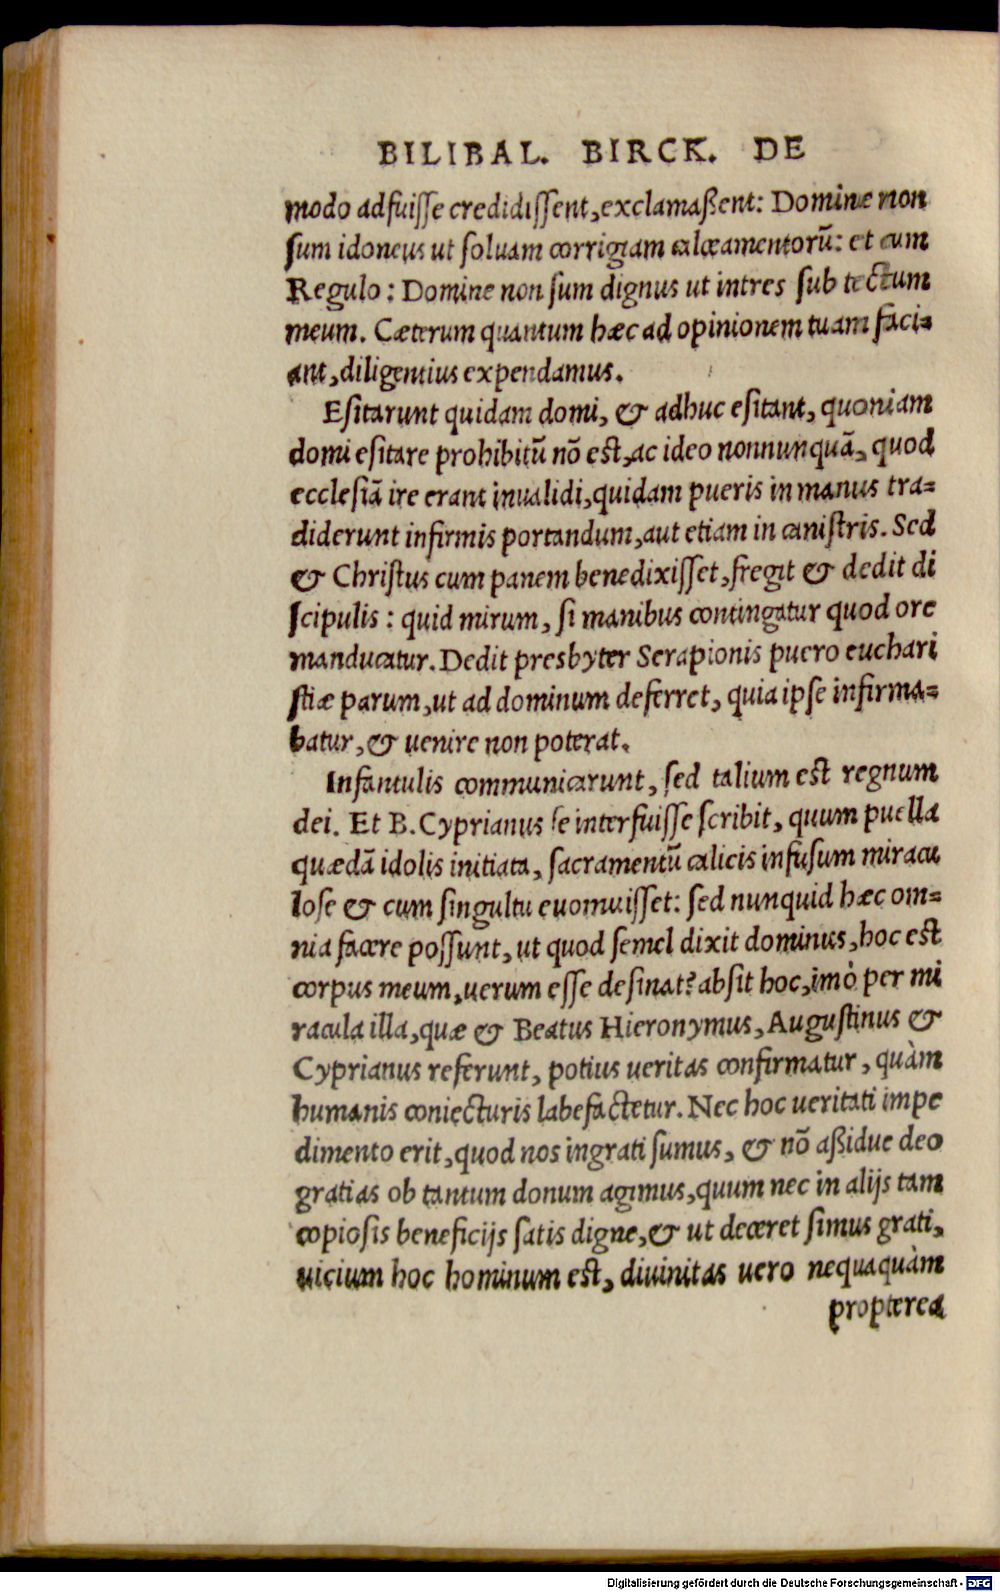 BILIBAL. BIRCK. DE
modo adfuiſſe credidiſſent, exclamaßent: Domine non
ſum idoneus ut ſoluam corrigiam calceamentorū: et cum
Regulo: Domine non ſum dignus ut intres ſub tectum
meum. Cæterum quantum hæc ad opinionem tuam faci=
ant, diligentius expendamus.
Eſitarunt quidam domi, & adhuc eſitant, quoniam
domi eſitare prohibitū nō eſt, ac ideo nonnunquā, quod
eccleſiā ire erant inualidi, quidam pueris in manus tra=
diderunt infirmis portandum, aut etiam in caniſtris. Sed
& Chriſtus cum panem benedixiſſet, fregit & dedit di
ſcipulis: quid mirum, ſi manibus contingatur quod ore
manducatur. Dedit presbyter Serapionis puero euchari
ſtiæ parum, ut ad dominum deferret, quia ipſe infirma=
batur, & uenire non poterat.
Infantulis communicarunt, ſed talium eſt regnum
dei. Et B. Cyprianus ſe interfuiſſe ſcribit, quum puella
quædā idolis initiata, ſacramentū calicis infuſum miracu
loſe & cum ſingultu euomuiſſet: ſed nunquid hæc om=
nia facere poſſunt, ut quod ſemel dixit dominus, hoc eſt
corpus meum, uerum eſſe deſinat? abſit hoc, imò per mi
racula illa, quæ & Beatus Hieronymus, Auguſtinus &
Cyprianus referunt, potius ueritas confirmatur, quàm
humanis coniecturis labefactetur. Nec hoc ueritati impe
dimento erit, quod nos ingrati ſumus, & nō aßidue deo
gratias ob tantum donum agimus, quum nec in alijs tam
copioſis beneficijs ſatis digne, & ut deceret ſimus grati,
uicium hoc hominum eſt, diuinitas uero nequaquàm
propterea
Digitalisierung gefördert durch die Deutsche Forschungsgemeinschaft - DFG